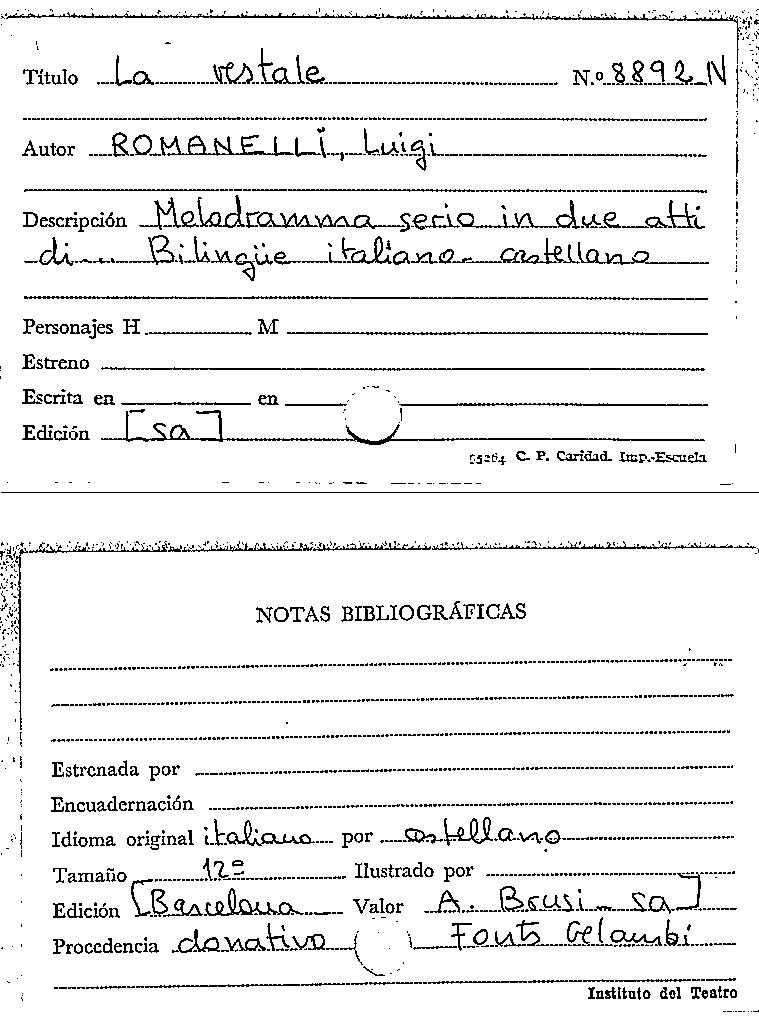 Título La vestale N.º 8892 N
Autor ROMANELLI, Luigi
Descripción Melodramma serio in due atti
di... Bilingüe italiano-castellano
Personajes H M
Estreno
Escrita en en
Edición [sa]
55264 C. P. Caridad. Imp.-Escuela
NOTAS BIBLIOGRÁFICAS
Estrenada por
Encuadernación
Idioma original italiano por castellano
Tamaño 12º Ilustrado por
Edición [Barcelona Valor A. Brusi - sa]
Procedencia donativo Fonts Gelambí
Instituto del Teatro